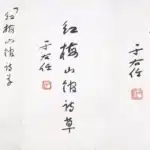 于右任
紅梅山館詩草
于右任
紅梅山館詩草